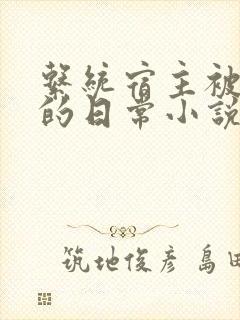 繫統宿主被
的日常小説
筑地俊彥 島田